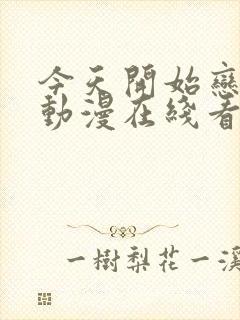 今天開始戀
動漫在綫看
一樹梨花一溪